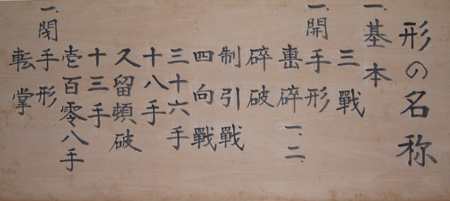 形の名称
一.基本
三戰
一.開手形
碎一.二
碎破
制引戰
四向戰
三十六手
十八手
久留頓破
十三手
壱百零八手
一.閉手形
転掌